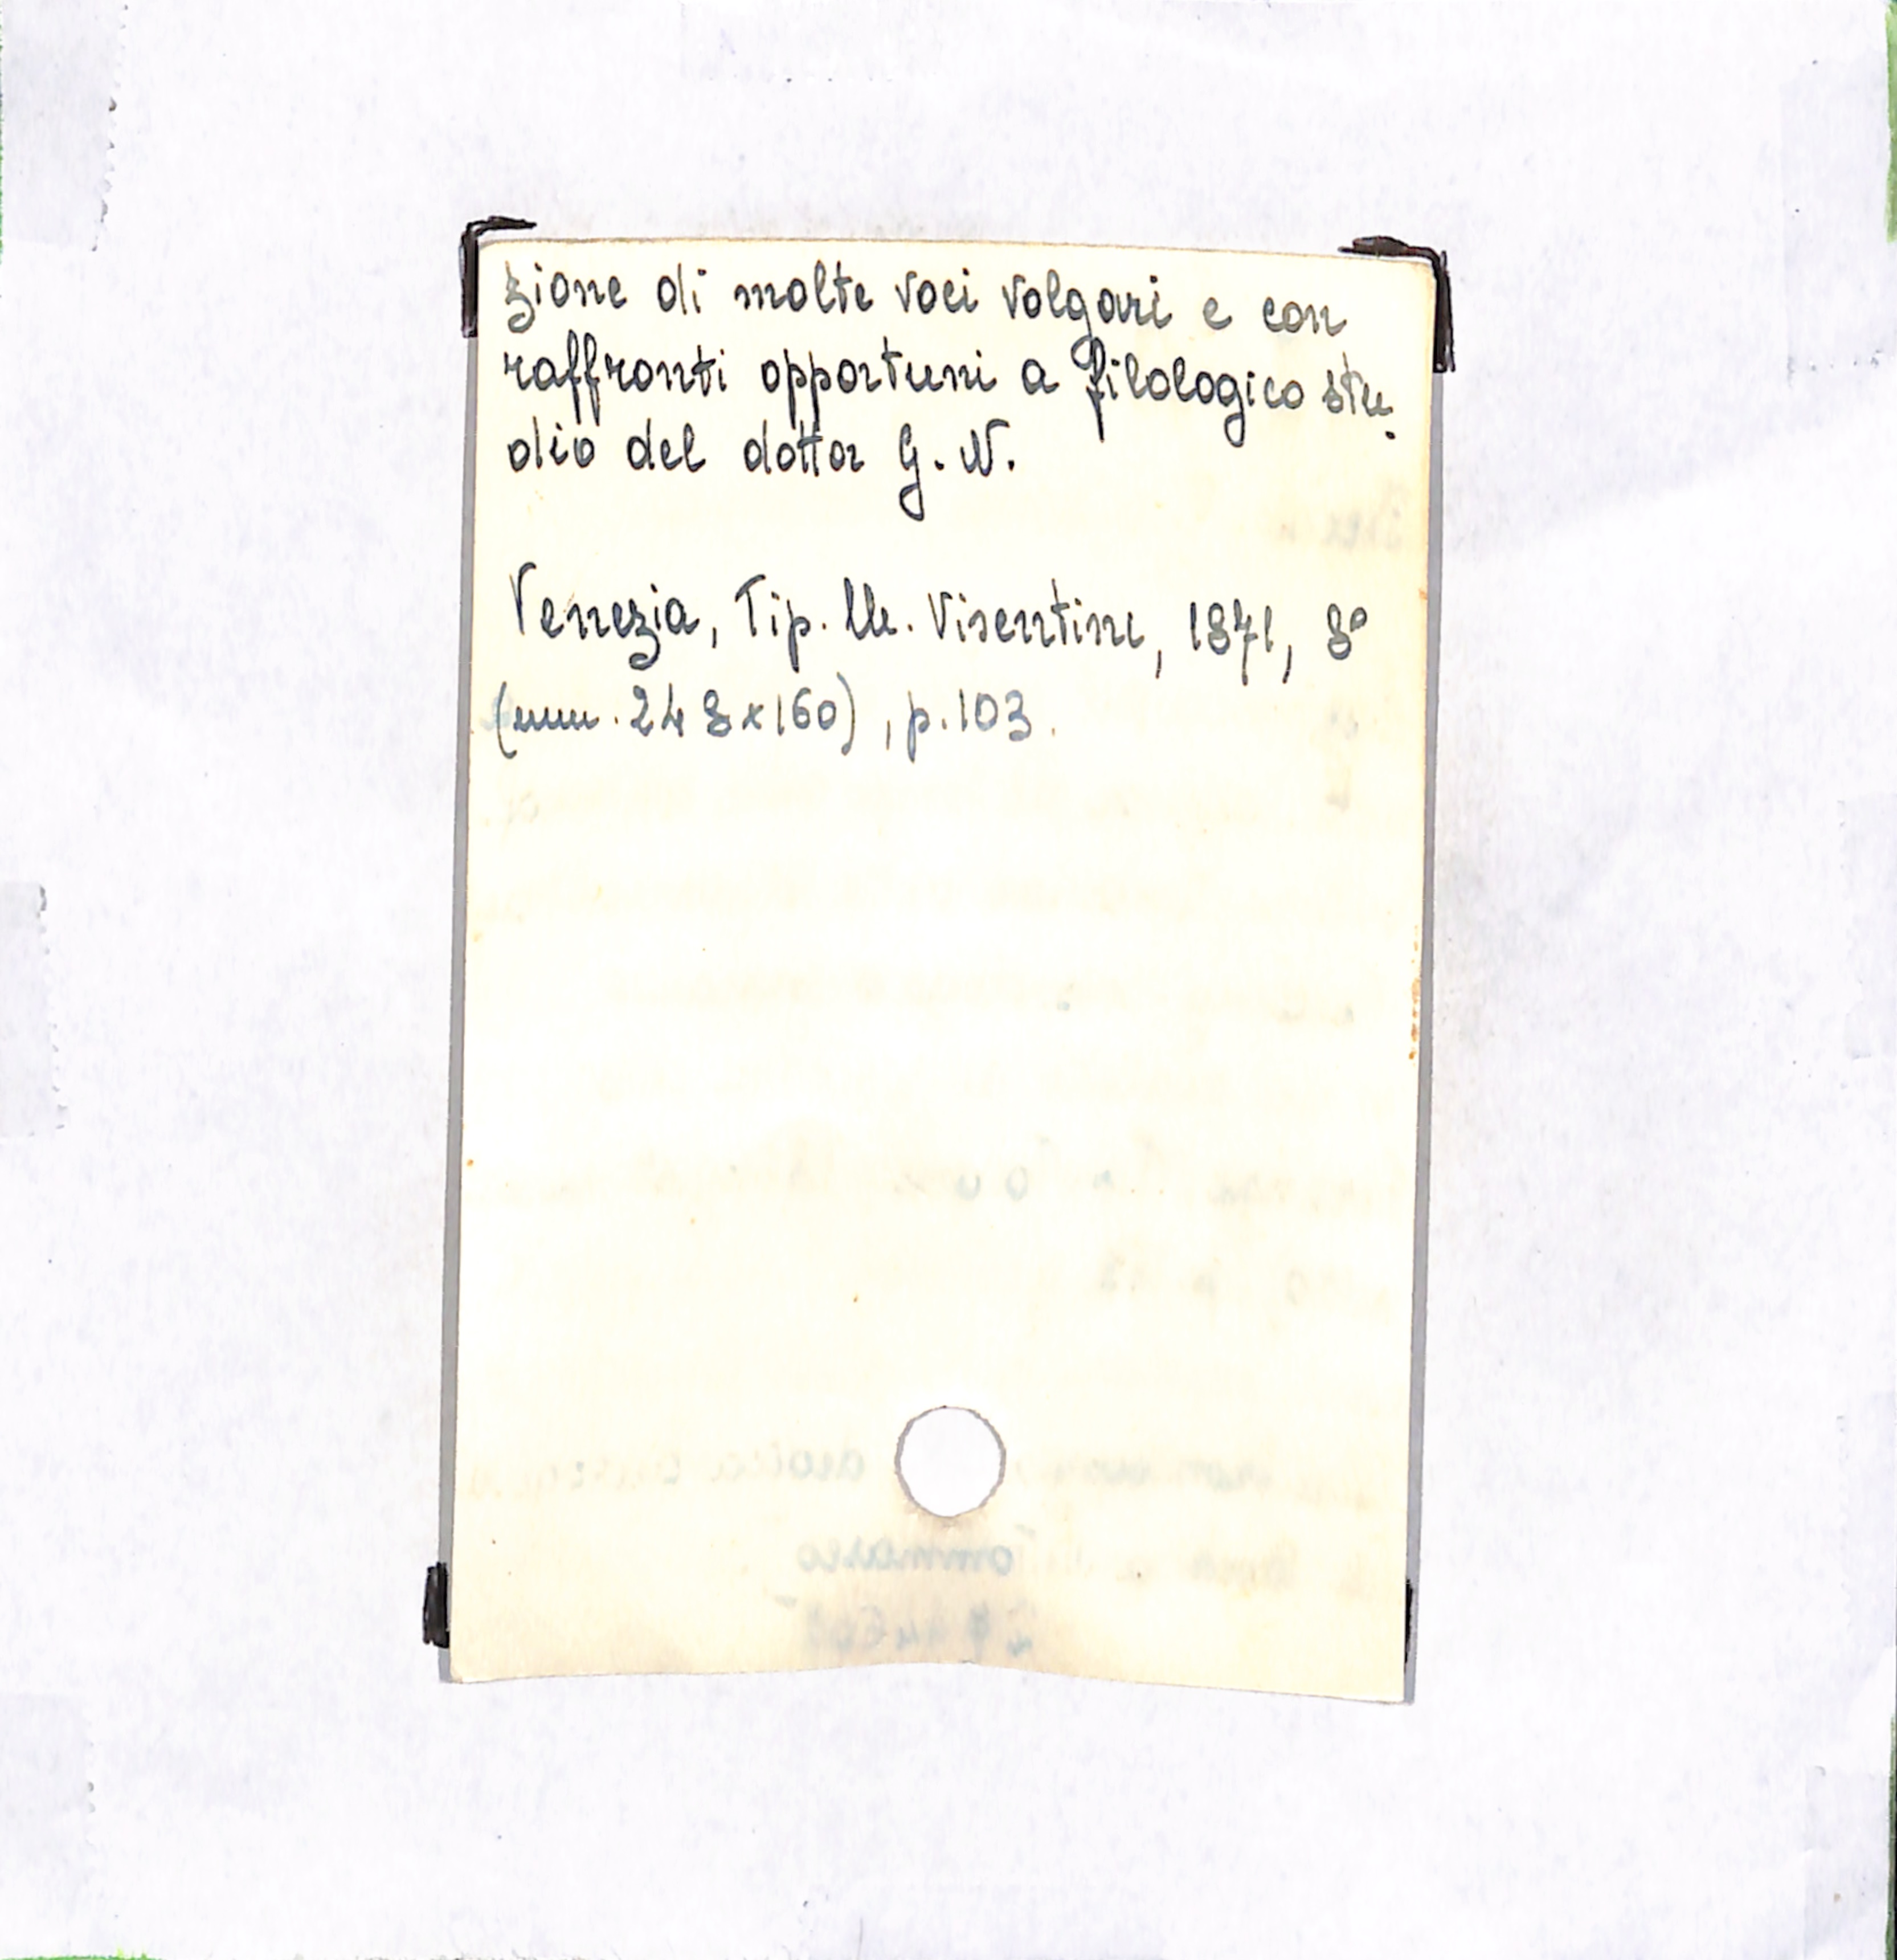 zione di molte voci volgari e con
raffronti opportuni a filologico stu-
dio del dottor G. N.
Venezia, Tip. M. Visentini, 1871, 8°
(mm. 248x160), p. 103.